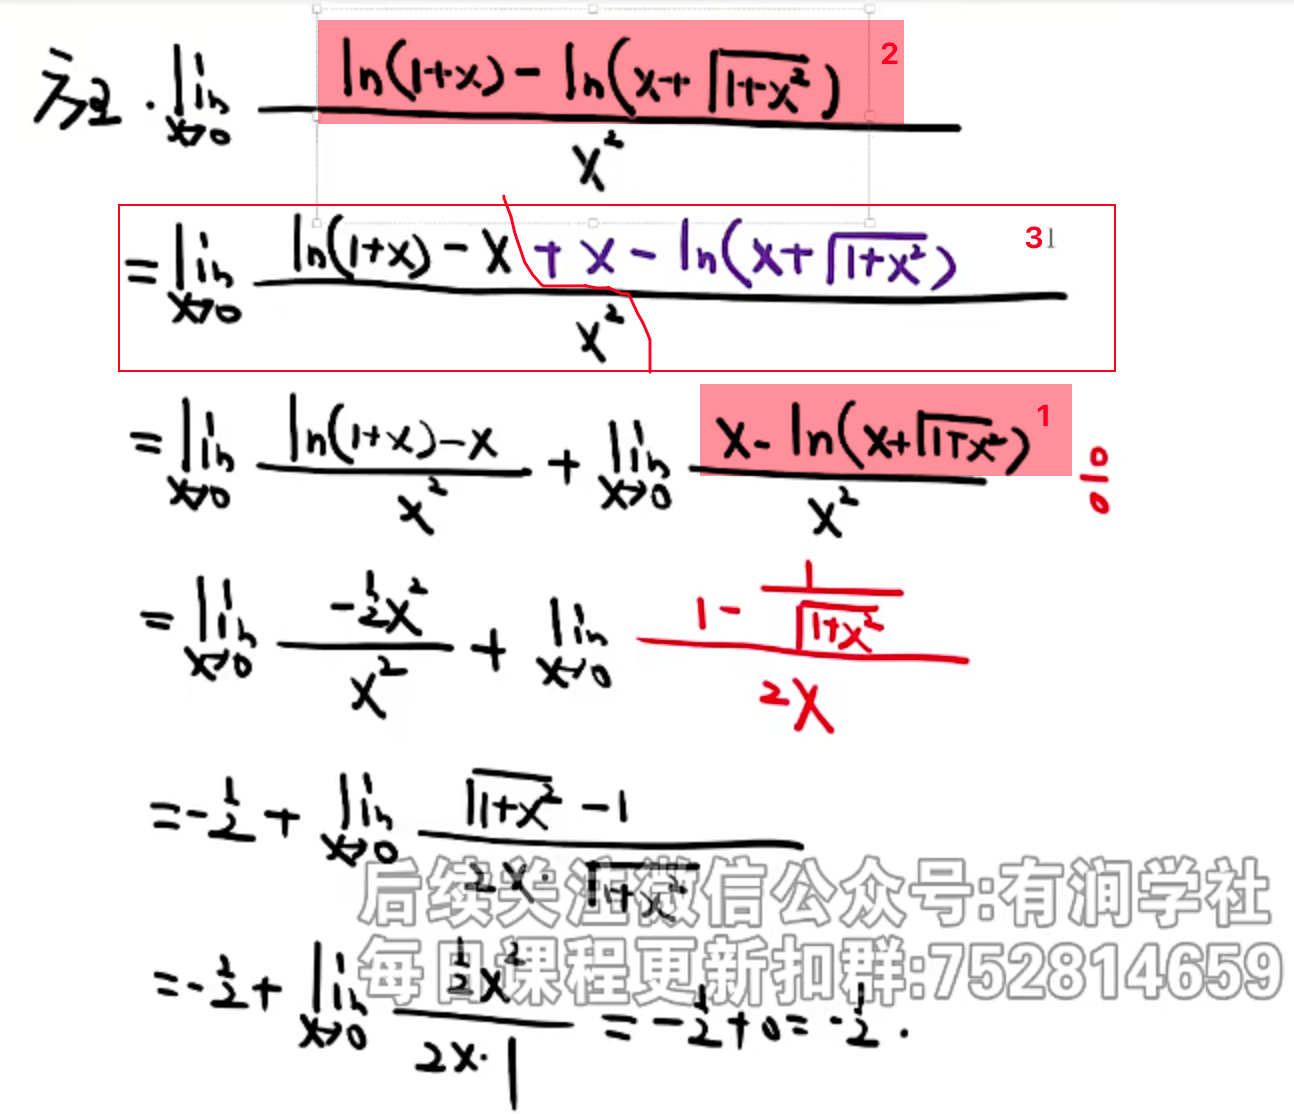 方法2. lim x→0 (ln(1+x) - ln(x+√(1+x²))) / x² 2
= lim x→0 (ln(1+x) - x + x - ln(x+√(1+x²))) / x² 3
= lim x→0 (ln(1+x) - x) / x² + lim x→0 (x - ln(x+√(1+x²))) / x² 1 0/0
= lim x→0 (-½x²) / x² + lim x→0 (1 - 1/√(1+x²)) / 2x
= -½ + lim x→0 (√(1+x²) - 1) / (2x·√(1+x²))
后续关注微信公众号:有润学社
每日课程更新扣群:752814659
= -½ + lim x→0 (½x²) / (2x·1) = -½ + 0 = -½.